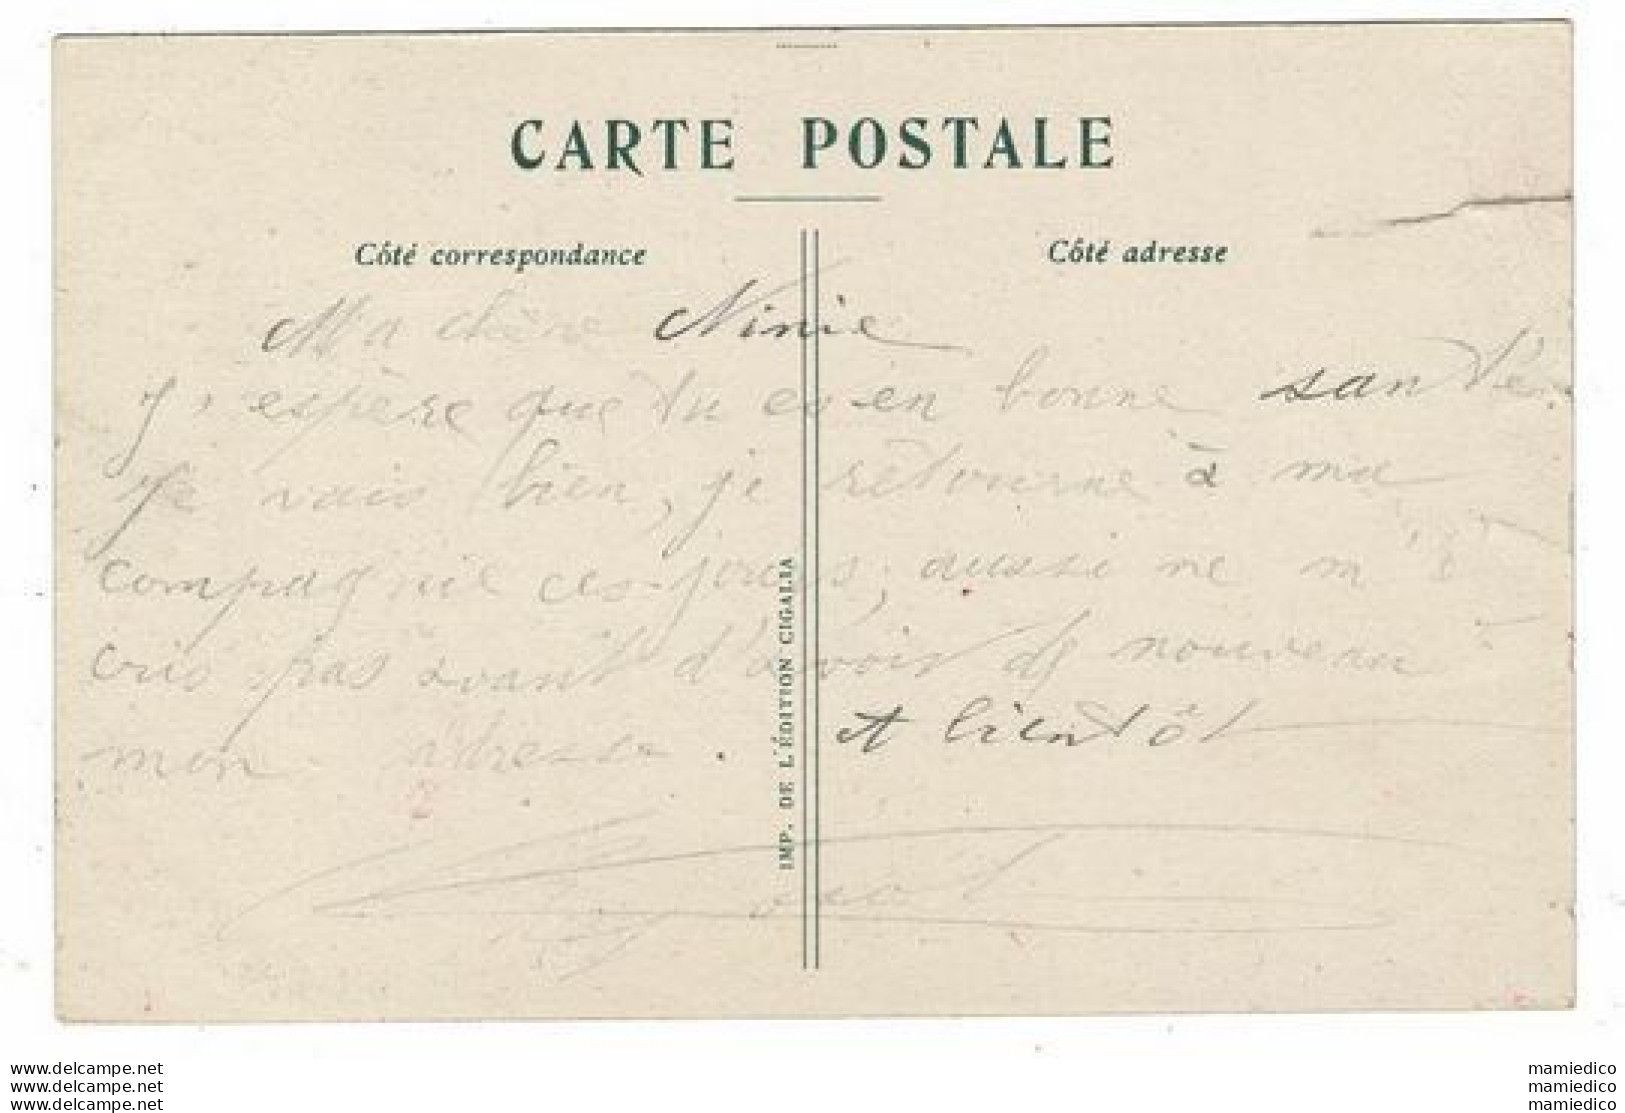 CARTE POSTALE
Côté correspondance
Côté adresse
Ma chère Ninie
J'espère que tu es en bonne santé.
Je vais bien, je retourne à ma
compagnie ces jours, aussi ne m'é
cris pas avant d'avoir de nouveau
mon adresse. A bientôt
IMP. DE L'ÉDITION CIGALIA
www.delcampe.net
www.delcampe.net
www.delcampe.net
mamiedico
mamiedico
mamiedico